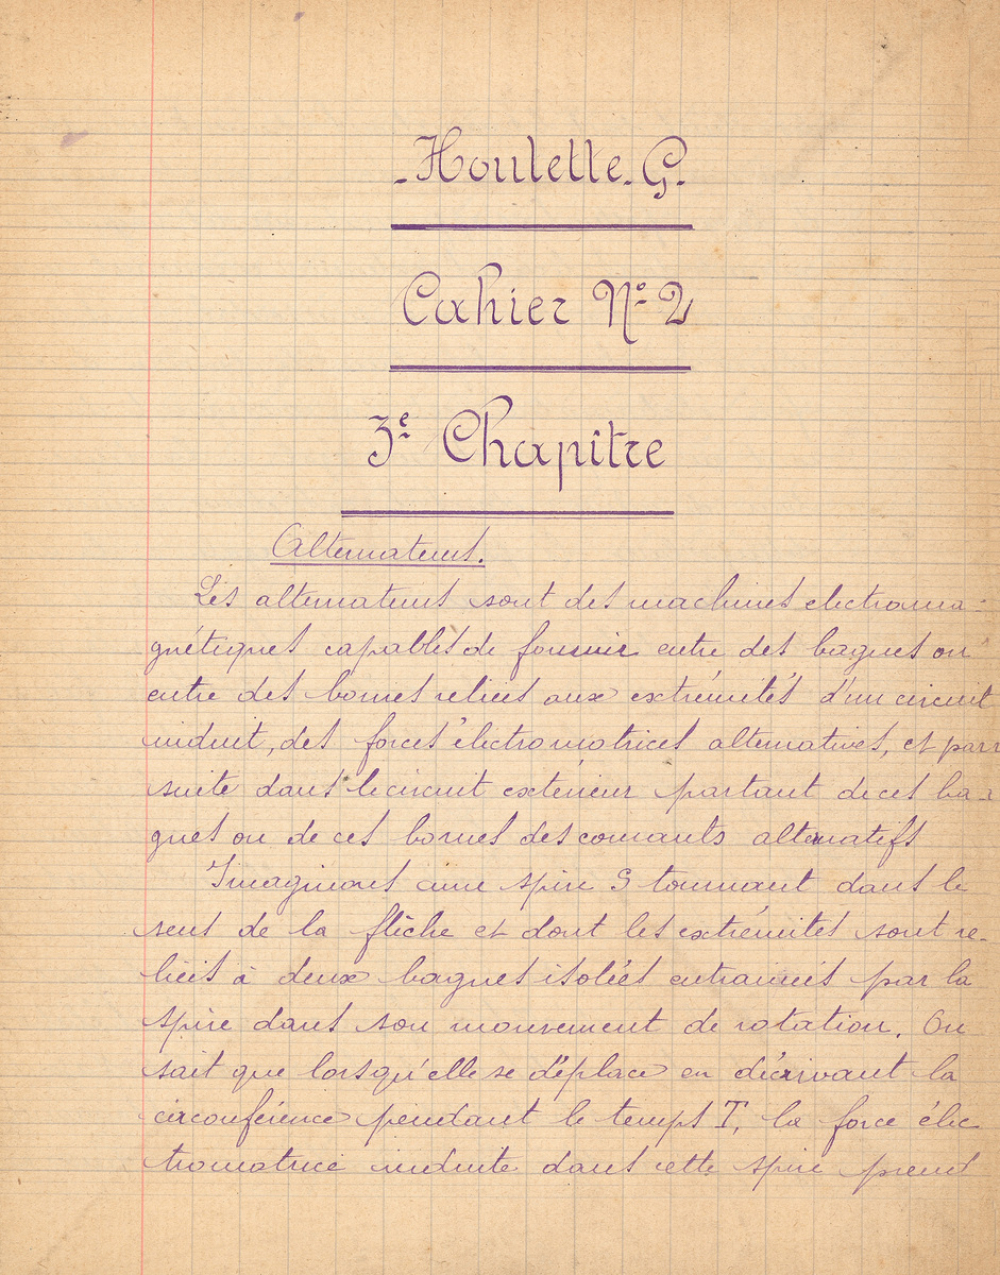 - Houlette. G.
Cahier N° 2
3e Chapitre
Alternateurs.
Les alternateurs sont des machines electroma-
gnétiques capables de fournir entre des bagues ou
entre des bornes reliées aux extrémités d'un circuit
induit, des forces électromotrices alternatives, et par
suite dans le circuit extérieur partant de ces ba-
gues ou de ces bornes des courants alternatifs
Imaginons une spire S tournant dans le
sens de la flèche et dont les extrémités sont re-
liées à deux bagues isolées entrainées par la
spire dans son mouvement de rotation. On
sait que lorsqu'elle se déplace en décrivant la
circonférence pendant le temps T, la force élec
tromotrice induite dans cette spire prend